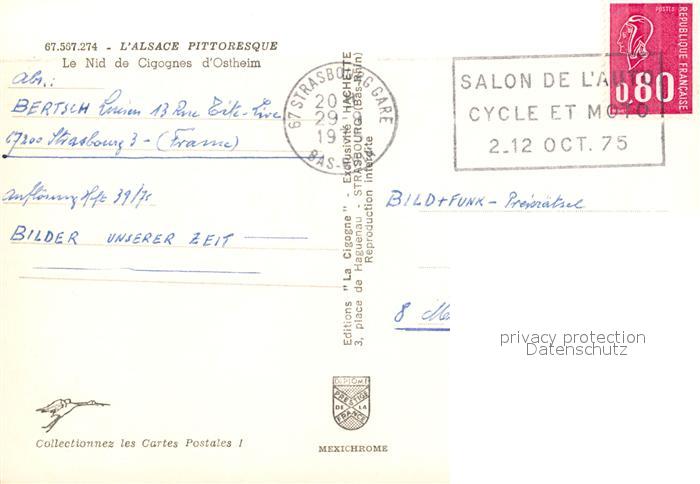 67.567.274 - L'ALSACE PITTORESQUE
Le Nid de Cigognes d'Ostheim
Abs.:
BERTSCH Lucien 13 Rue Tite-Live
67200 Strasbourg 3 - (France)
Auflösung Hft 39/75
BILDER UNSERER ZEIT
67 STRASBOURG GARE
BAS-
Editions "La Cigogne" - Exclusivité HACHETTE
3, place de Haguenau - STRASBOURG (Bas-Rhin)
Reproduction interdite
SALON DE L'AUTO
CYCLE ET MOTO
2_12 OCT. 75
POSTES
REPUBLIQUE FRANÇAISE
0,80
BILD+FUNK - Preisrätsel
8
privacy protection
Datenschutz
Collectionnez les Cartes Postales !
DIPLOME
PRESTIGE
DE LA
FRANCE
MEXICHROME